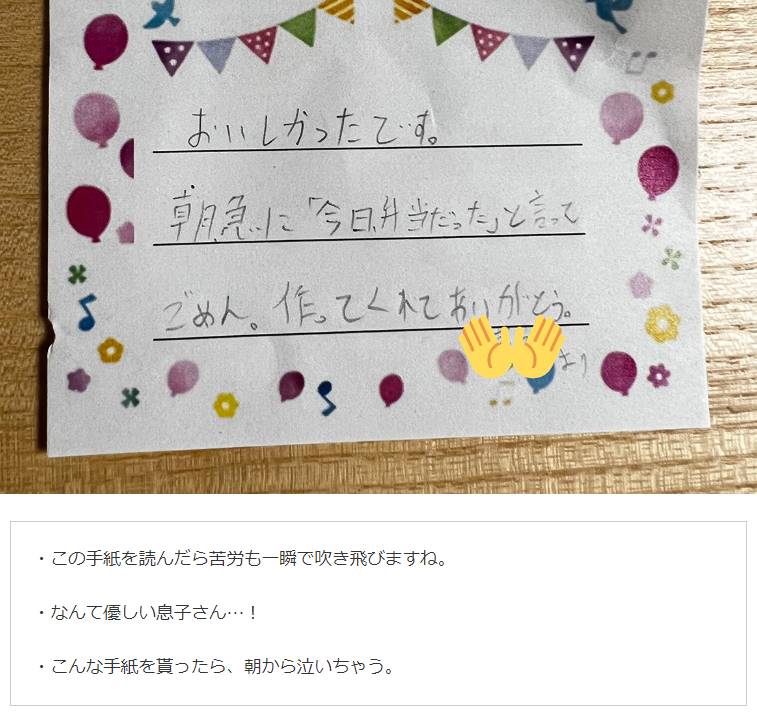 おいしかったです。
朝急に「今日弁当だった」と言って
ごめん。作ってくれてありがとう。
より
・この手紙を読んだら苦労も一瞬で吹き飛びますね。
・なんて優しい息子さん…！
・こんな手紙を貰ったら、朝から泣いちゃう。